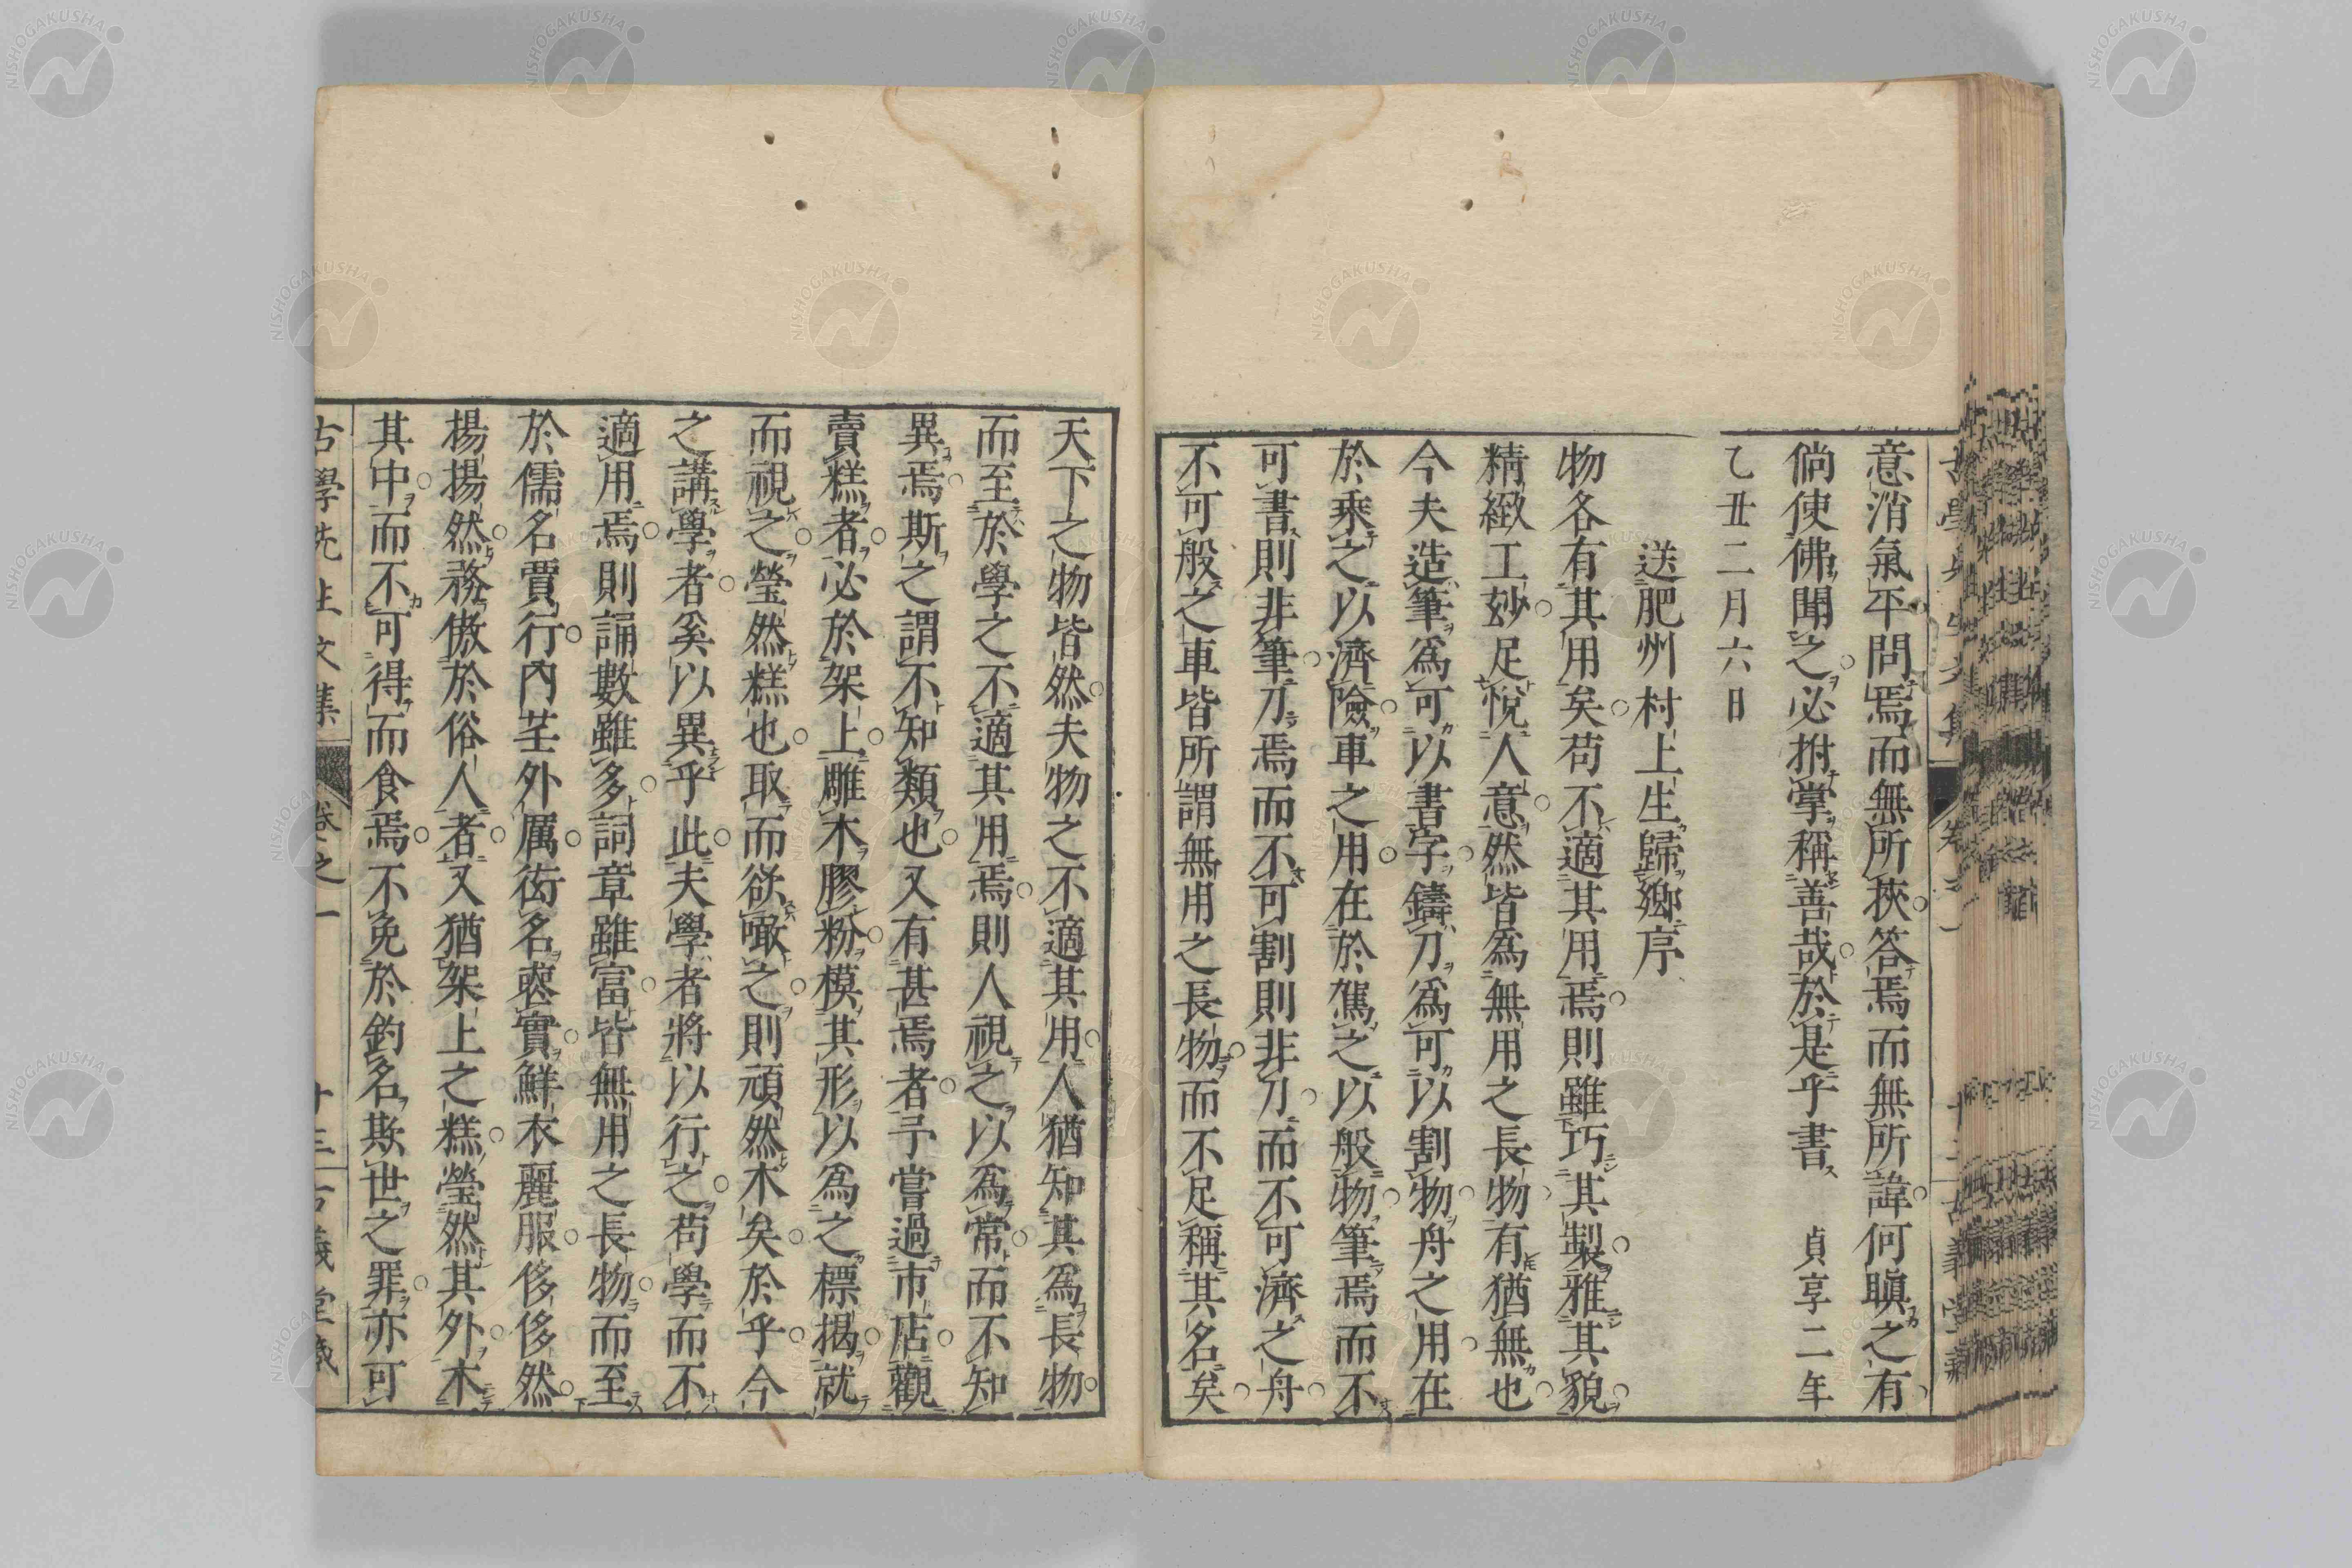 意消氣平問焉而無所挾答焉而無所諱何瞋之有
倘使佛聞之必拊掌稱善哉於是乎書　貞享二年
乙丑二月六日
送肥州村上生歸鄉序
物各有其用矣苟不適其用焉則雖巧其製雅其貌
精緻工玅足悅人意然皆爲無用之長物有猶無也
今夫造筆爲可以書字鑄刀爲可以割物舟之用在
於乘之以濟險車之用在於駕之以般物筆焉而不
可書則非筆刀焉而不可割則非刀而不可濟之舟
不可般之車皆所謂無用之長物而不足稱其名矣
天下之物皆然夫物之不適其用人猶知其爲長物
而至於學之不適其用焉則人視之以爲常而不知
異焉斯之謂不知類也又有甚焉者予嘗過市店觀
賣糕者必於架上雕木膠粉模其形以爲之標揭就
而視之瑩然糕也取而欲噉之則頑然木矣於乎今
之講學者奚以異乎此夫學者將以行之苟學而不
適用焉則誦數雖多詞章雖富皆無用之長物而至
於儒名賈行內荏外厲衒名喪實鮮衣麗服侈侈然
揚揚然務傲於俗人者又猶架上之糕瑩然其外木
其中而不可得而食焉不免於釣名欺世之罪亦可
古學先生文集　卷之一　十三　古義堂藏